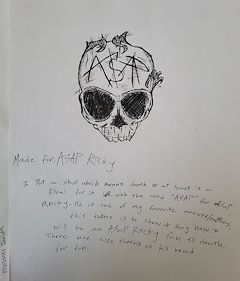 ASAP
Made for ASAP Rocky
I Put a skull which means death or at least is a
visual for it with the word "ASAP" for ASAP
Rocky. He is one of my favorite
this token is to show & say how I
will be an ASAP Rocky fan till death.
There are also thorns on his head
for fun.